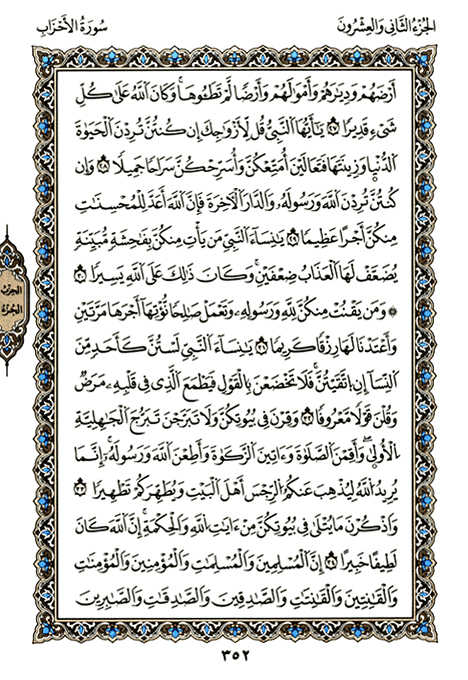 الجُزْءُ الثَّانِى وَالعِشْرُونَ
سُورَةُ الأَحْزَابِ
أَرْضَهُمْ وَدِيَٰرَهُمْ وَأَمْوَٰلَهُمْ وَأَرْضًا لَّمْ تَطَـُٔوهَا ۚ وَكَانَ ٱللَّهُ عَلَىٰ كُلِّ
شَىْءٍ قَدِيرًا ٢٧ يَٰٓأَيُّهَا ٱلنَّبِىُّ قُل لِّأَزْوَٰجِكَ إِن كُنتُنَّ تُرِدْنَ ٱلْحَيَوٰةَ
ٱلدُّنْيَا وَزِينَتَهَا فَتَعَالَيْنَ أُمَتِّعْكُنَّ وَأُسَرِّحْكُنَّ سَرَاحًا جَمِيلًا ٢٨ وَإِن
كُنتُنَّ تُرِدْنَ ٱللَّهَ وَرَسُولَهُۥ وَٱلدَّارَ ٱلْءَاخِرَةَ فَإِنَّ ٱللَّهَ أَعَدَّ لِلْمُحْسِنَٰتِ
مِنكُنَّ أَجْرًا عَظِيمًا ٢٩ يَٰنِسَآءَ ٱلنَّبِىِّ مَن يَأْتِ مِنكُنَّ بِفَٰحِشَةٍ مُّبَيِّنَةٍ
يُضَٰعَفْ لَهَا ٱلْعَذَابُ ضِعْفَيْنِ ۚ وَكَانَ ذَٰلِكَ عَلَى ٱللَّهِ يَسِيرًا ٣٠
۞ وَمَن يَقْنُتْ مِنكُنَّ لِلَّهِ وَرَسُولِهِۦ وَتَعْمَلْ صَٰلِحًا نُّؤْتِهَآ أَجْرَهَا مَرَّتَيْنِ
وَأَعْتَدْنَا لَهَا رِزْقًا كَرِيمًا ٣١ يَٰنِسَآءَ ٱلنَّبِىِّ لَسْتُنَّ كَأَحَدٍ مِّنَ
ٱلنِّسَآءِ إِنِ ٱتَّقَيْتُنَّ ۚ فَلَا تَخْضَعْنَ بِٱلْقَوْلِ فَيَطْمَعَ ٱلَّذِى فِى قَلْبِهِۦ مَرَضٌ
وَقُلْنَ قَوْلًا مَّعْرُوفًا ٣٢ وَقَرْنَ فِى بُيُوتِكُنَّ وَلَا تَبَرَّجْنَ تَبَرُّجَ ٱلْجَٰهِلِيَّةِ
ٱلْأُولَىٰ ۖ وَأَقِمْنَ ٱلصَّلَوٰةَ وَءَاتِينَ ٱلزَّكَوٰةَ وَأَطِعْنَ ٱللَّهَ وَرَسُولَهُۥٓ ۚ إِنَّمَا
يُرِيدُ ٱللَّهُ لِيُذْهِبَ عَنكُمُ ٱلرِّجْسَ أَهْلَ ٱلْبَيْتِ وَيُطَهِّرَكُمْ تَطْهِيرًا ٣٣
وَٱذْكُرْنَ مَا يُتْلَىٰ فِى بُيُوتِكُنَّ مِنْ ءَايَٰتِ ٱللَّهِ وَٱلْحِكْمَةِ ۚ إِنَّ ٱللَّهَ كَانَ
لَطِيفًا خَبِيرًا ٣٤ إِنَّ ٱلْمُسْلِمِينَ وَٱلْمُسْلِمَٰتِ وَٱلْمُؤْمِنِينَ وَٱلْمُؤْمِنَٰتِ
وَٱلْقَٰنِتِينَ وَٱلْقَٰنِتَٰتِ وَٱلصَّٰدِقِينَ وَٱلصَّٰدِقَٰتِ وَٱلصَّٰبِرِينَ
الحزب
الجزء
٣٥٢